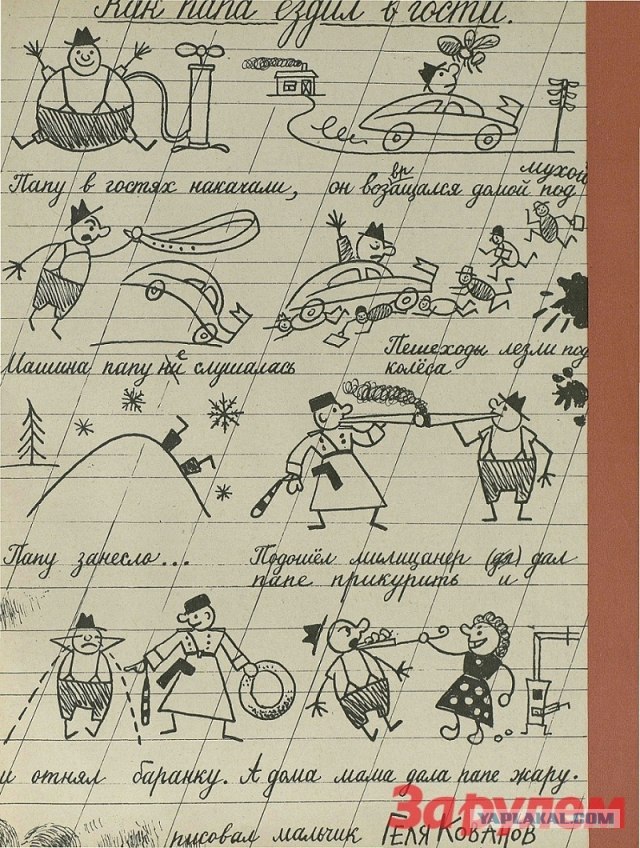 Как папа ездил в гости.
Папу в гостях накачали, он возащался домой под мухой
вр
Машина папу не слушалась
Пешеходы лезли под колёса
Папу занесло...
Подошёл милицанер (дл) дал
папе прикурить и
и отнял баранку. А дома мама дала папе жару.
рисовал мальчик Геля Кованов
За рулем
YAPLAKAL.COM